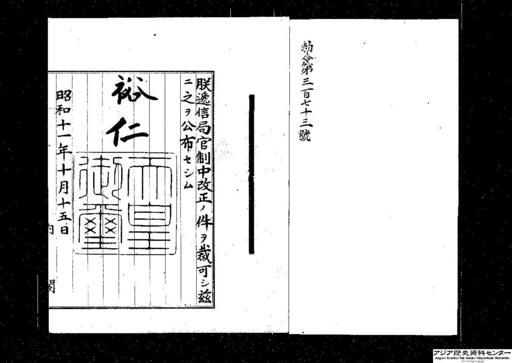 勅令第三百七十三號
朕遞信局官制中改正ノ件ヲ裁可シ茲
ニ之ヲ公布セシム
裕仁
天皇御璽
昭和十一年十月十五日
内閣
アジア歴史資料センター
Japan Center for Asian Historical Records